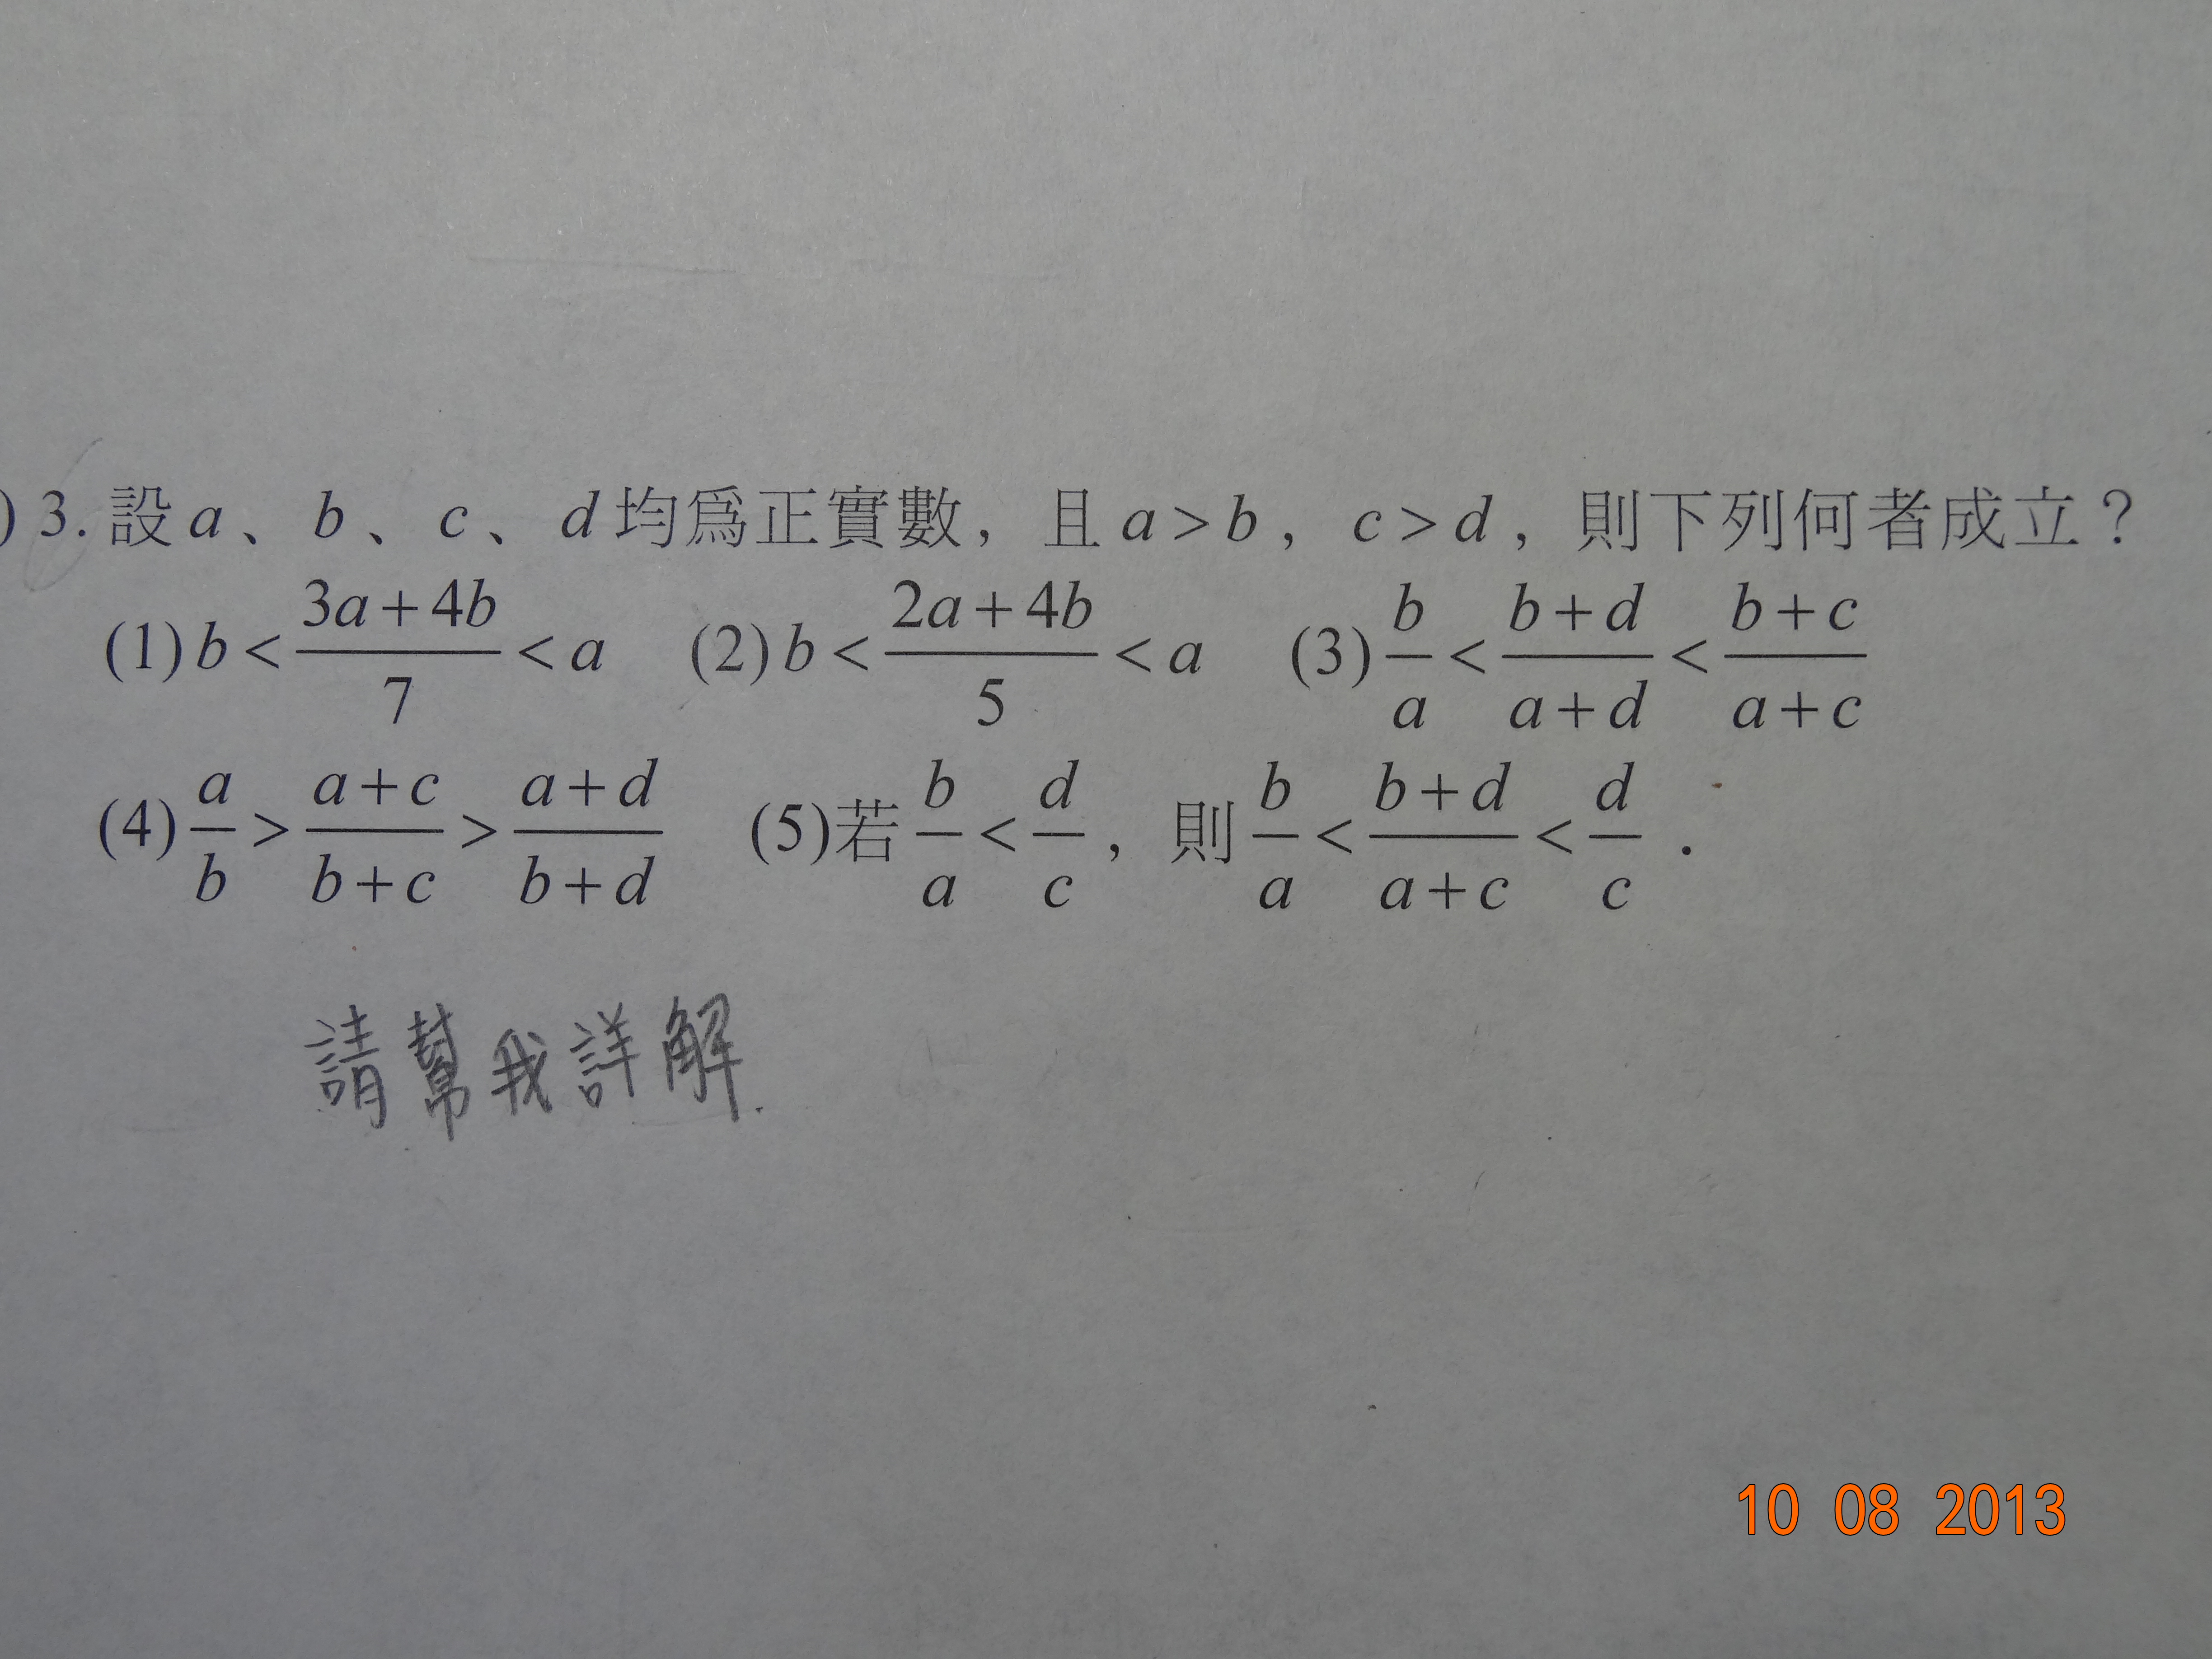 ) 3. 設 a 、 b 、 c 、 d 均爲正實數，且 a > b ， c > d ，則下列何者成立？
(1) b < \frac{3a+4b}{7} < a (2) b < \frac{2a+4b}{5} < a (3) \frac{b}{a} < \frac{b+d}{a+d} < \frac{b+c}{a+c}
(4) \frac{a}{b} > \frac{a+c}{b+c} > \frac{a+d}{b+d} (5)若 \frac{b}{a} < \frac{d}{c} ，則 \frac{b}{a} < \frac{b+d}{a+c} < \frac{d}{c} ．
請幫我詳解.
10 08 2013